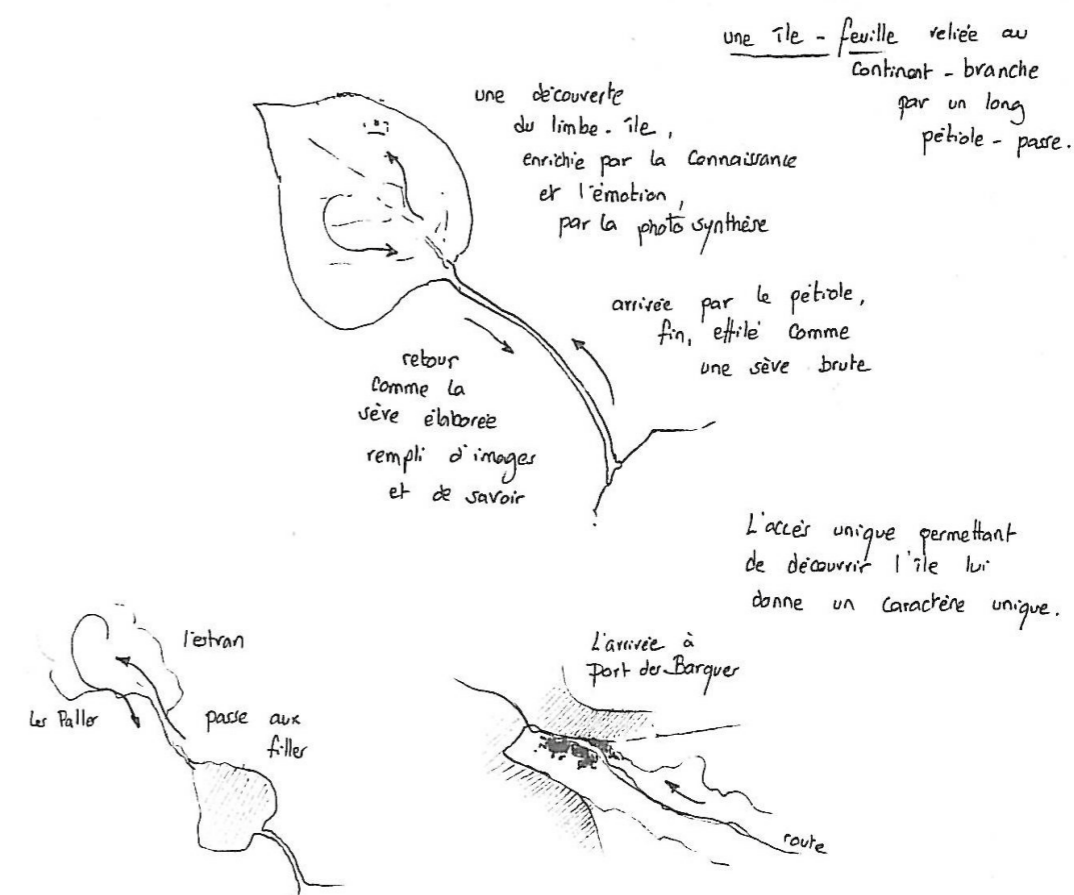 une île - feuille reliée au
continent - branche
par un long
pétiole - passe.
une découverte
du limbe - île,
enrichie par la connaissance
et l'émotion,
par la photosynthèse
arrivée par le pétiole,
fin, effilé comme
une sève brute
retour
comme la
sève élaborée
rempli d'images
et de savoir
L'accès unique permettant
de découvrir l'île lui
donne un caractère unique.
l'estran
Les Palles
passe aux
filles
L'arrivée à
Port des Barques
route